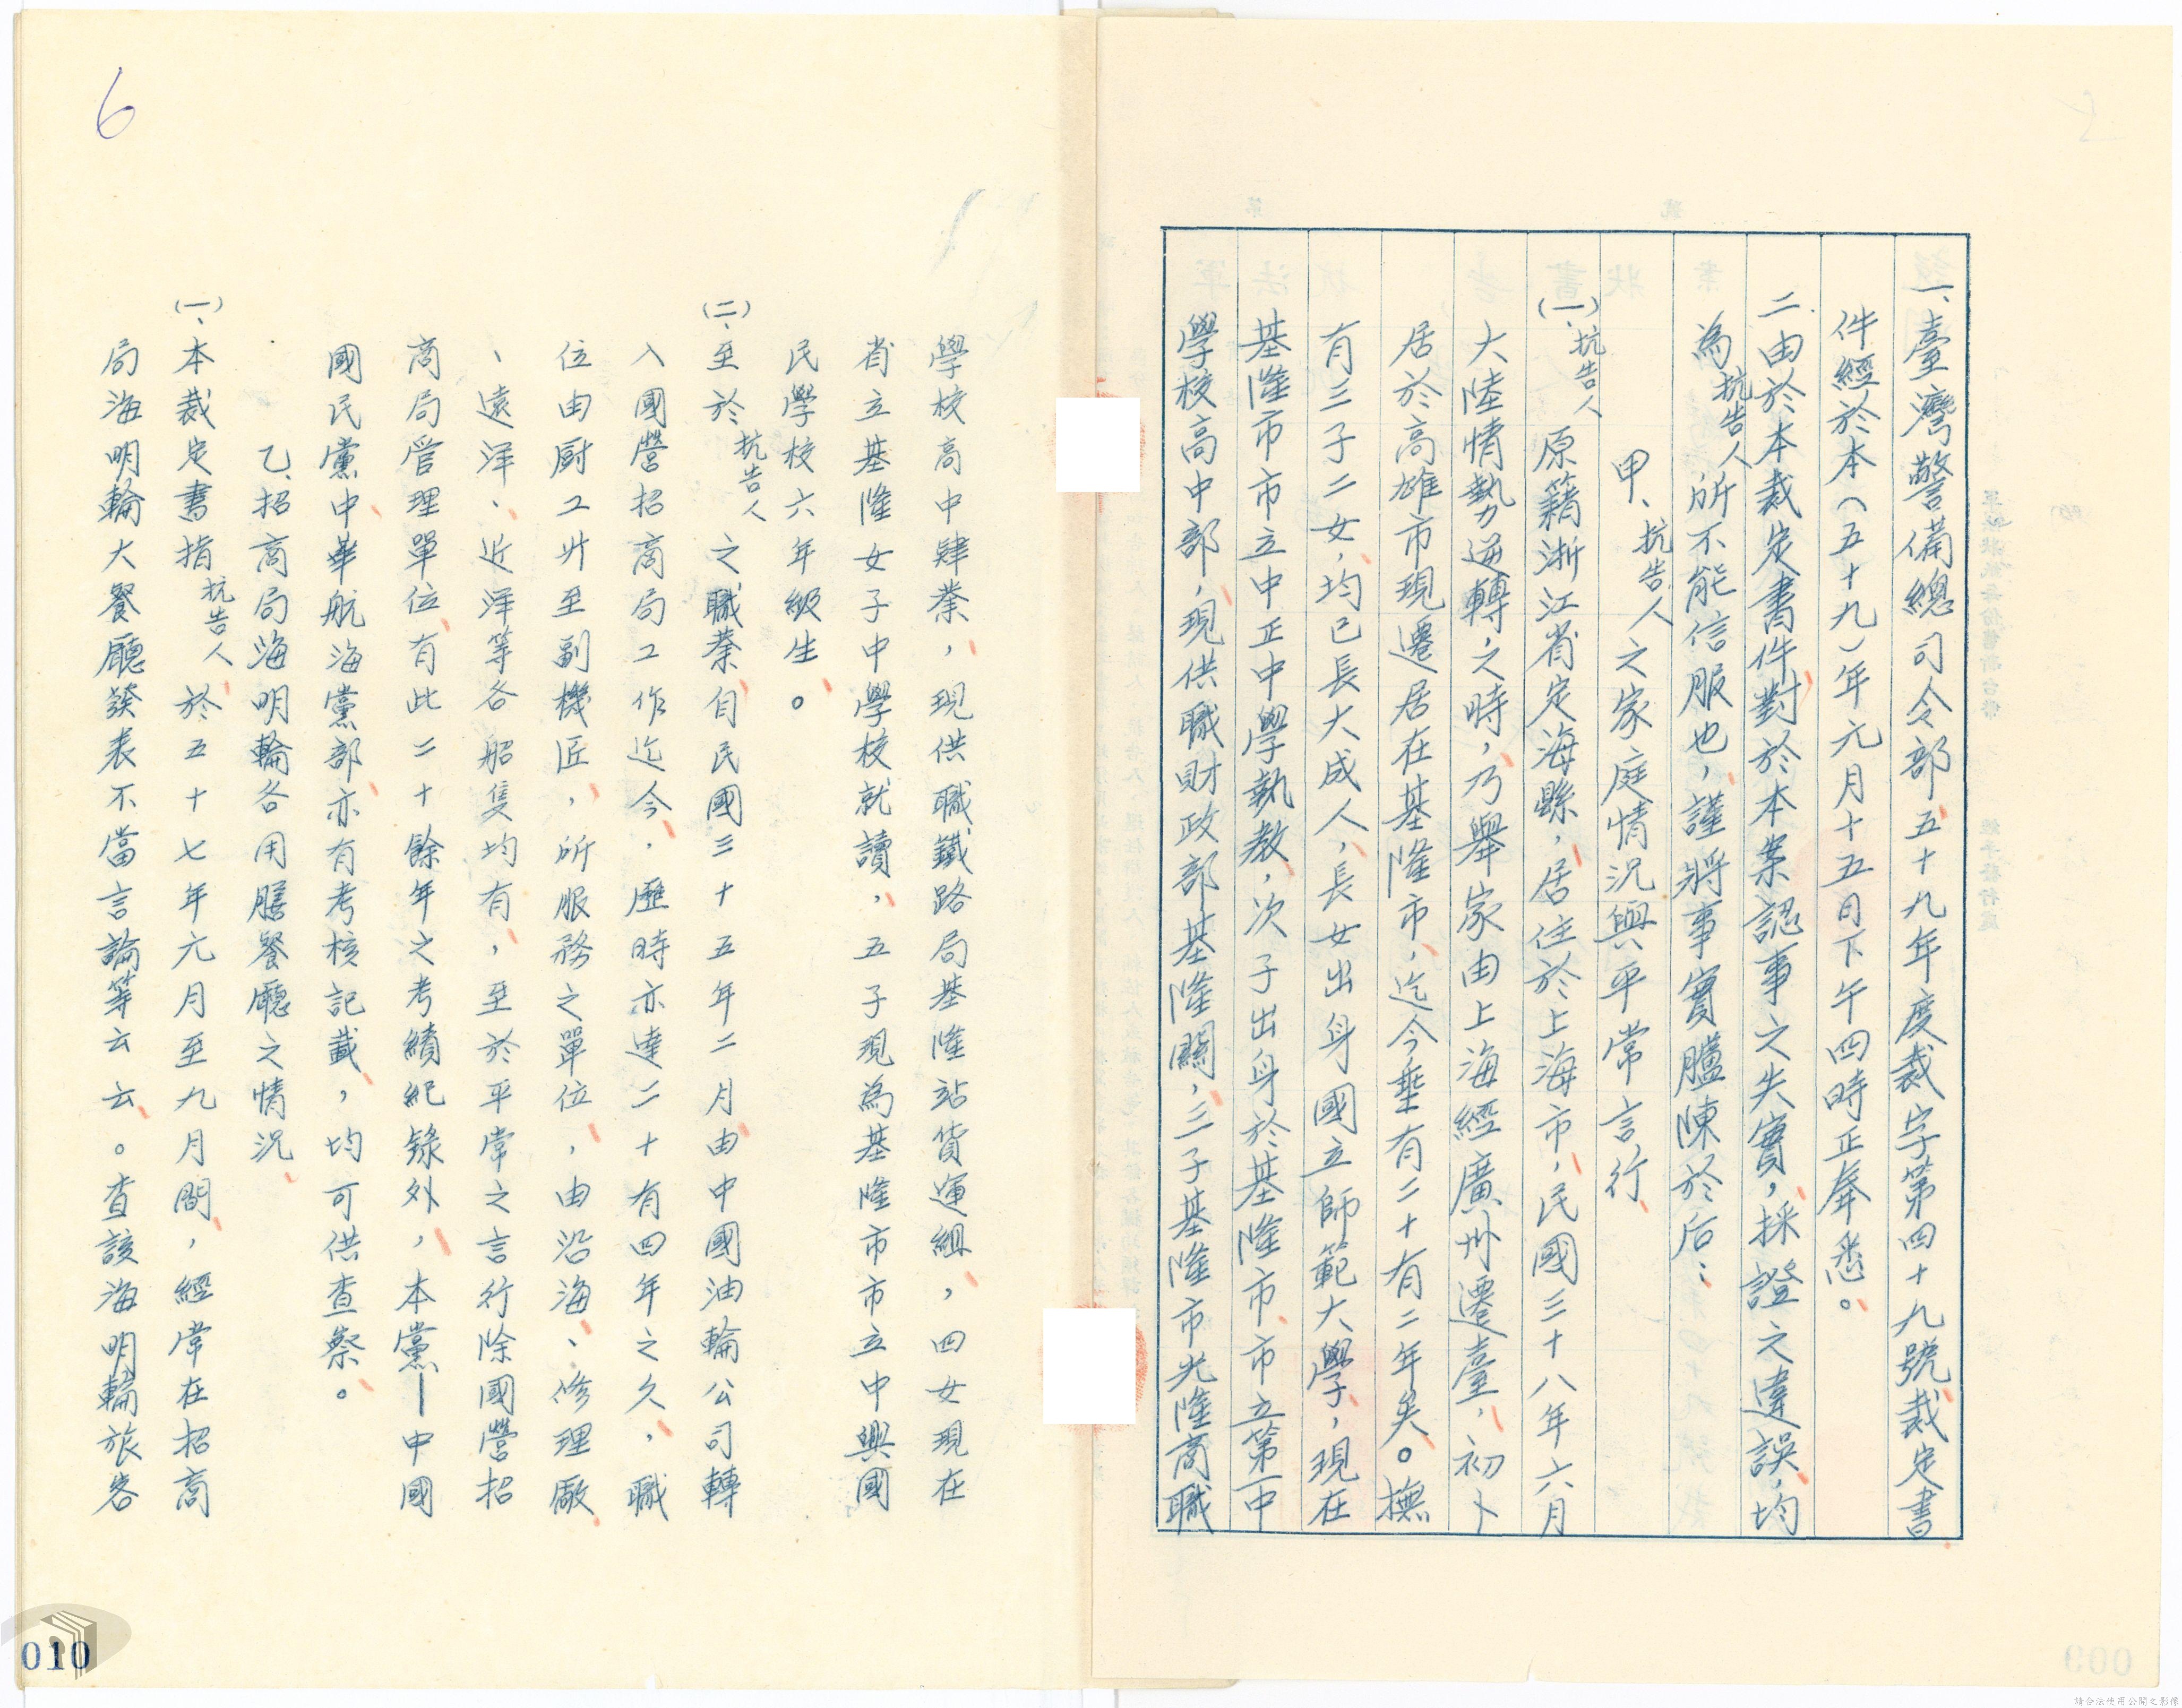 一、臺灣警備總司令部五十九年度裁字第四十九號裁定書
件經於本(五十九)年元月十五日下午四時正奉悉。
二、由於本裁定書件對於本案認事之失實，採證之違誤，均
為抗告人所不能信服也，謹將事實臚陳於后：
甲、抗告人之家庭情況與平常言行
(一)、抗告人原籍浙江省定海縣，居住於上海市，民國三十八年六月
大陸情勢逆轉之時，乃舉家由上海經廣州遷臺，初卜
居於高雄市現遷居在基隆市，迄今垂有二十有二年矣。撫
有三子二女，均已長大成人，長女出身國立師範大學，現在
基隆市市立中正中學執教，次子出身於基隆市市立第一中
學校高中部，現供職財政部基隆關，三子基隆市光隆商職
學校高中肄業，現供職鐵路局基隆站貨運組，四女現在
省立基隆女子中學校就讀，五子現為基隆市市立中興國
民學校六年級生。
(二)、至於抗告人之職業自民國三十五年二月由中國油輪公司轉
入國營招商局工作迄今，歷時亦達二十有四年之久，職
位由厨工升至副機匠，所服務之單位，由沿海、修理廠
、遠洋、近洋等各船隻均有，至於平常之言行除國營招
商局管理單位有此二十餘年之考績紀錄外，本黨—中國
國民黨中華航海黨部亦有考核記載，均可供查察。
乙、招商局海明輪各用膳餐廳之情況
(一)、本裁定書指抗告人於五十七年元月至九月間，經常在招商
局海明輪大餐廳發表不當言論等云云。查該海明輪旅客
6
010
請合法使用公開之影像